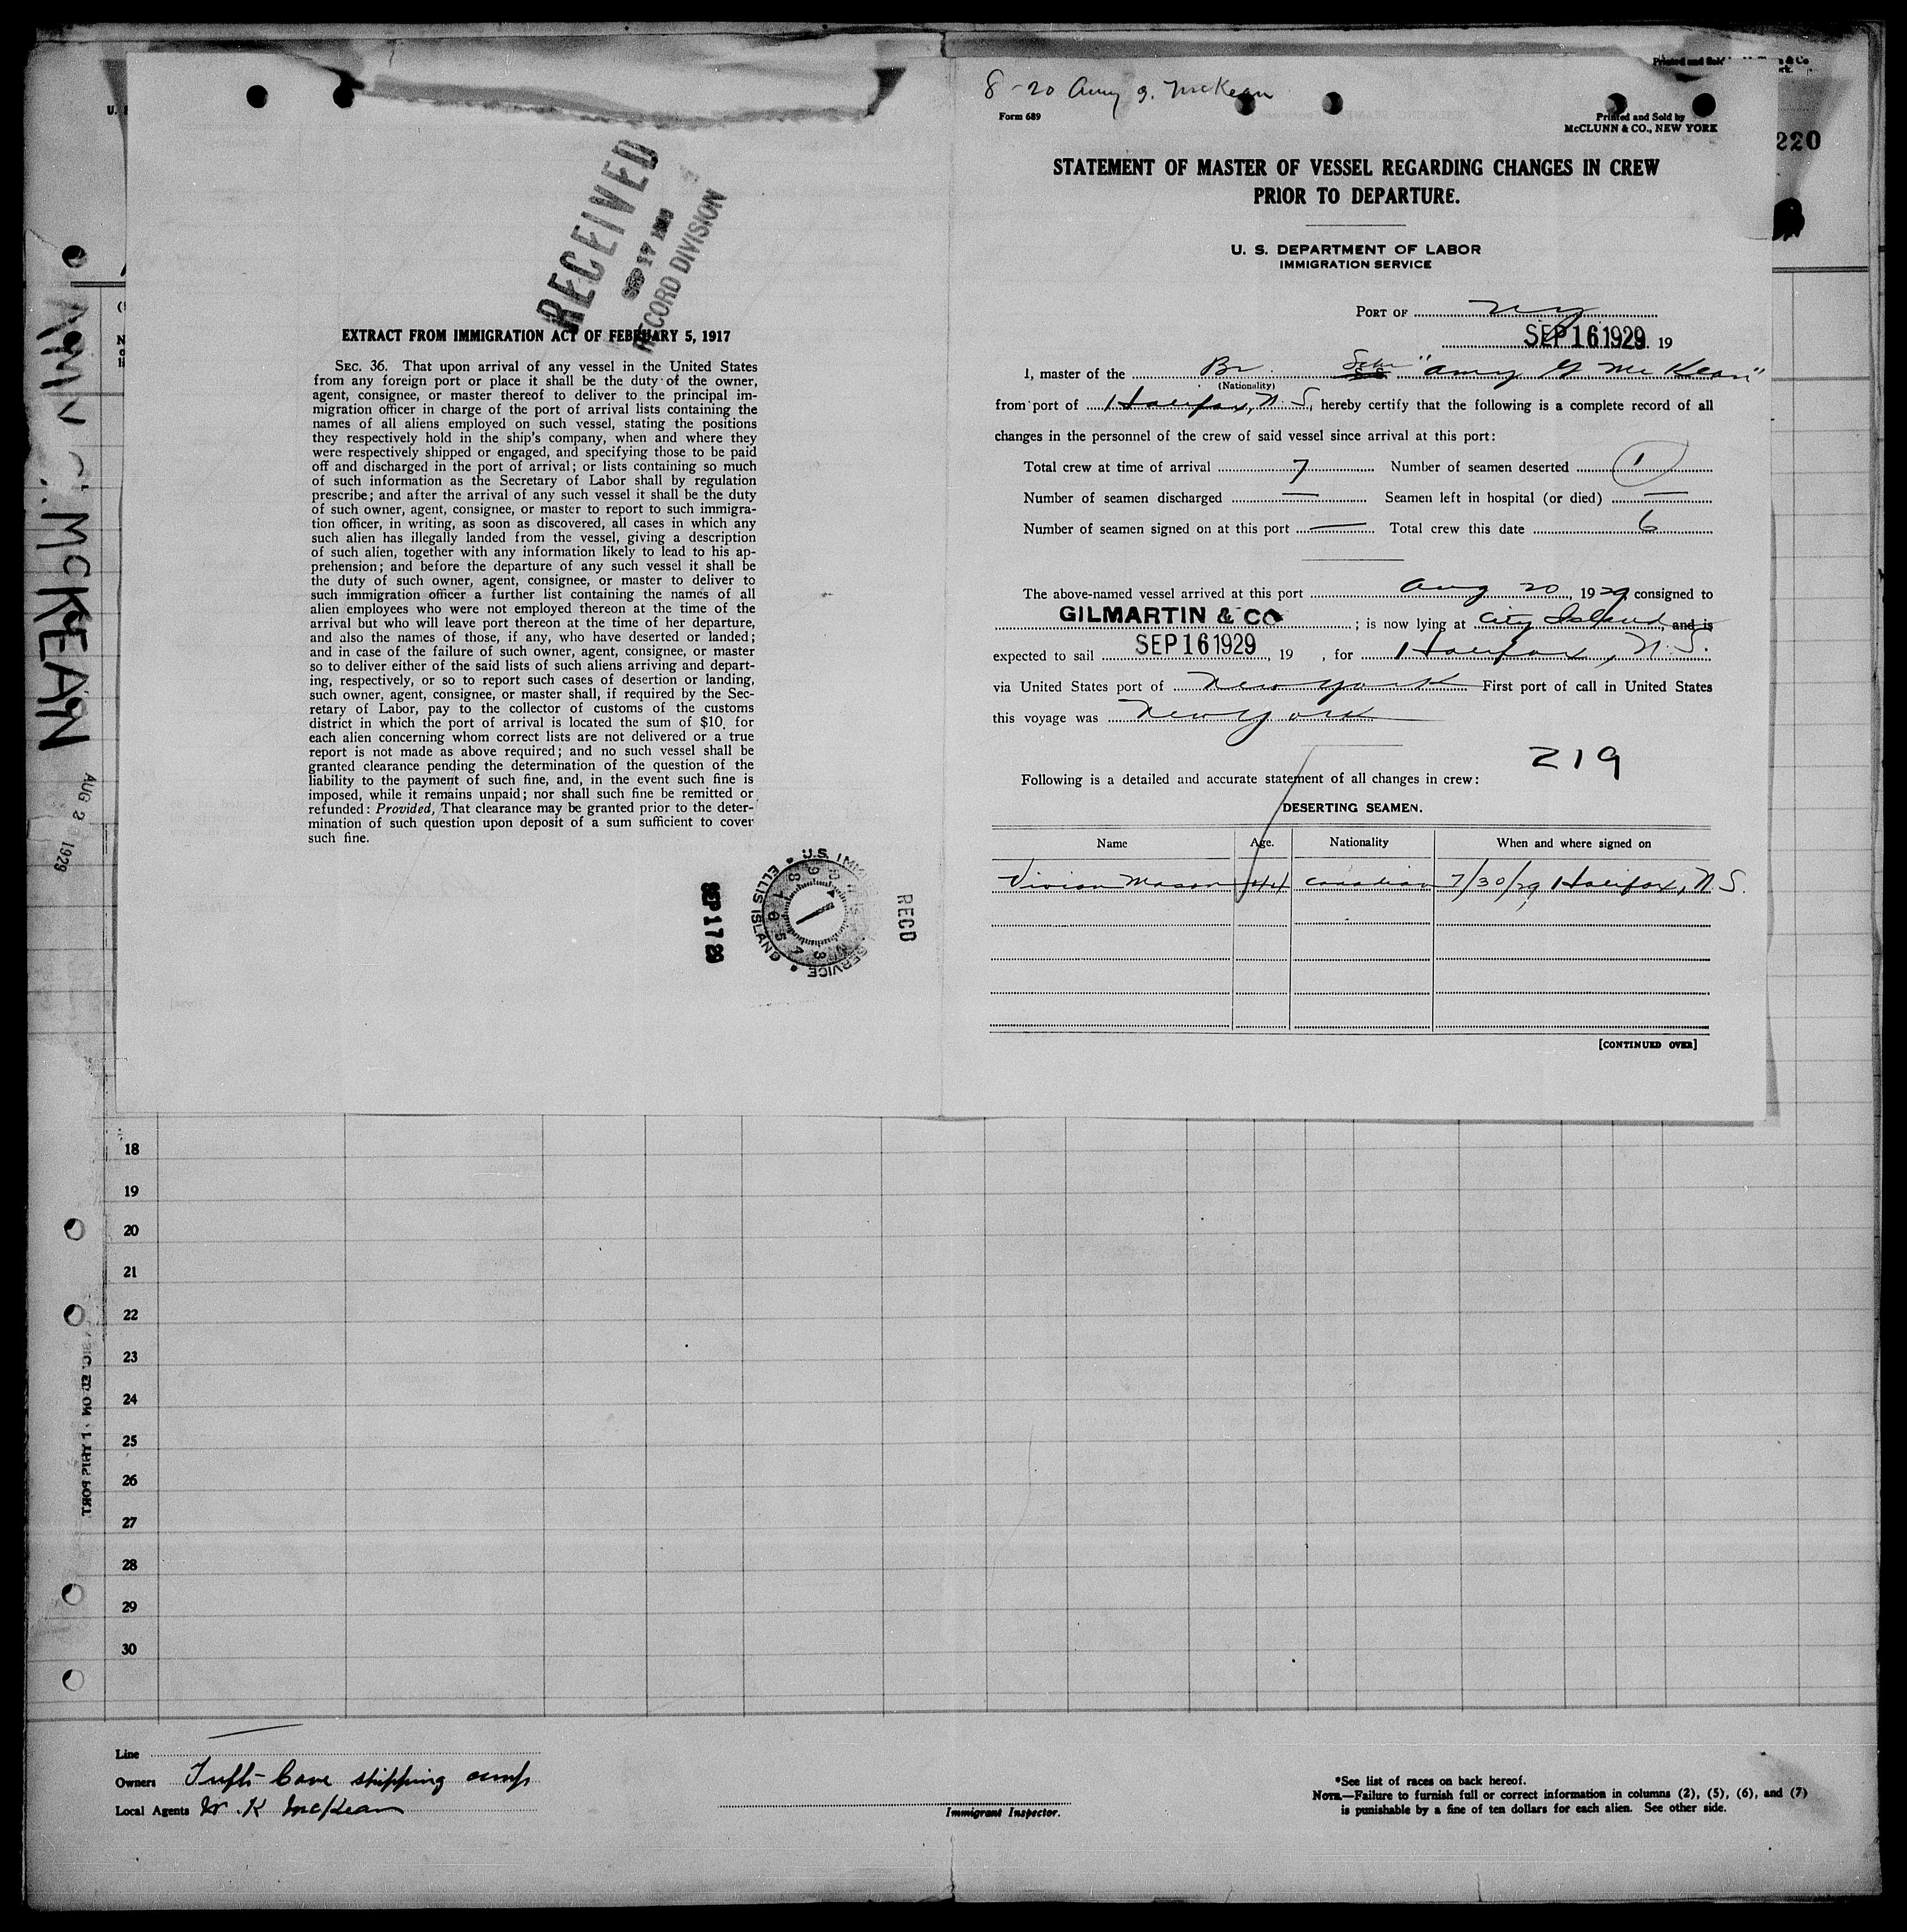 RECEIVED
SEP 17 1929
RECORD DIVISION
EXTRACT FROM IMMIGRATION ACT OF FEBRUARY 5, 1917
SEC. 36. That upon arrival of any vessel in the United States
from any foreign port or place it shall be the duty of the owner,
agent, consignee, or master thereof to deliver to the principal im-
migration officer in charge of the port of arrival lists containing the
names of all aliens employed on such vessel, stating the positions
they respectively hold in the ship's company, when and where they
were respectively shipped or engaged, and specifying those to be paid
off and discharged in the port of arrival; or lists containing so much
of such information as the Secretary of Labor shall by regulation
prescribe; and after the arrival of any such vessel it shall be the duty
of such owner, agent, consignee, or master to report to such immigra-
tion officer, in writing, as soon as discovered, all cases in which any
such alien has illegally landed from the vessel, giving a description
of such alien, together with any information likely to lead to his ap-
prehension; and before the departure of any such vessel it shall be
the duty of such owner, agent, consignee, or master to deliver to
such immigration officer a further list containing the names of all
alien employees who were not employed thereon at the time of the
arrival but who will leave port thereon at the time of her departure,
and also the names of those, if any, who have deserted or landed;
and in case of the failure of such owner, agent, consignee, or master
so to deliver either of the said lists of such aliens arriving and depart-
ing, respectively, or so to report such cases of desertion or landing,
such owner, agent, consignee, or master shall, if required by the Sec-
retary of Labor, pay to the collector of customs of the customs
district in which the port of arrival is located the sum of $10 for
each alien concerning whom correct lists are not delivered or a true
report is not made as above required; and no such vessel shall be
granted clearance pending the determination of the question of the
liability to the payment of such fine, and, in the event such fine is
imposed, while it remains unpaid; nor shall such fine be remitted or
refunded: Provided, That clearance may be granted prior to the deter-
mination of such question upon deposit of a sum sufficient to cover
such fine.
SEP 17 29
ELLIS ISLAND • U.S. IMM SERVICE •
RECD
8-20 Amy G. McKean
Form 689
Printed and Sold by
McCLUNN & CO., NEW YORK
220
STATEMENT OF MASTER OF VESSEL REGARDING CHANGES IN CREW
PRIOR TO DEPARTURE.
U. S. DEPARTMENT OF LABOR
IMMIGRATION SERVICE
PORT OF NY
SEP 16 1929 19
I, master of the Br Schr S.S. "Amy G McKean"
(Nationality)
from port of Halifax, N.S., hereby certify that the following is a complete record of all
changes in the personnel of the crew of said vessel since arrival at this port:
Total crew at time of arrival 7 Number of seamen deserted 1
Number of seamen discharged — Seamen left in hospital (or died) —
Number of seamen signed on at this port — Total crew this date 6
The above-named vessel arrived at this port Aug 20, 1929 consigned to
GILMARTIN & CO ; is now lying at City Island, and is
expected to sail SEP 16 1929, 19 , for Halifax, N.S.
via United States port of New York First port of call in United States
this voyage was New York
219
Following is a detailed and accurate statement of all changes in crew:
DESERTING SEAMEN.
Name Age. Nationality When and where signed on
Vivian Mason 44 Canadian 7/30/29 Halifax, N.S.
[CONTINUED OVER]
AMY G. MCKEAN
AUG 2 1929
18
19
20
21
22
23
24
25
26
27
28
29
30
Line
Owners Tufts Cove shipping comp
Local Agents W. K McKean
Immigrant Inspector.
*See list of races on back hereof.
NOTE.—Failure to furnish full or correct information in columns (2), (5), (6), and (7)
is punishable by a fine of ten dollars for each alien. See other side.